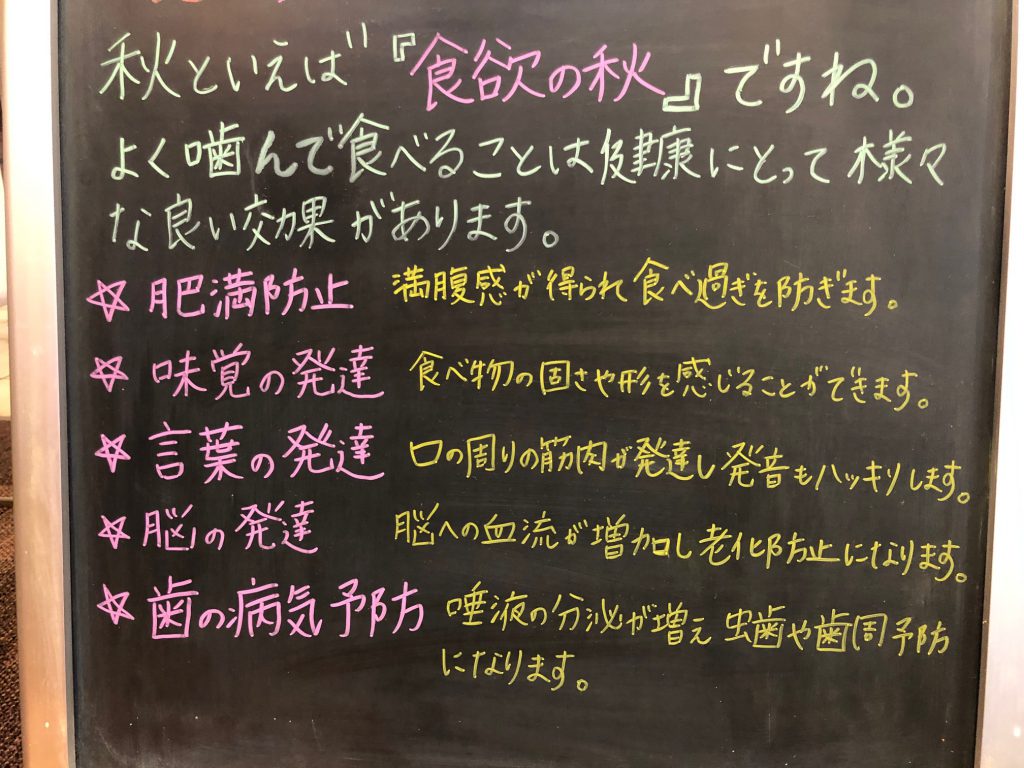 秋といえば『食欲の秋』ですね。
よく噛んで食べることは健康にとって様々
な良い効果があります。
☆肥満防止 満腹感が得られ食べ過ぎを防ぎます。
☆味覚の発達 食べ物の固さや形を感じることができます。
☆言葉の発達 口の周りの筋肉が発達し発音もハッキリします。
☆脳の発達 脳への血流が増加し老化防止になります。
☆歯の病気予防 唾液の分泌が増え虫歯や歯周予防
になります。